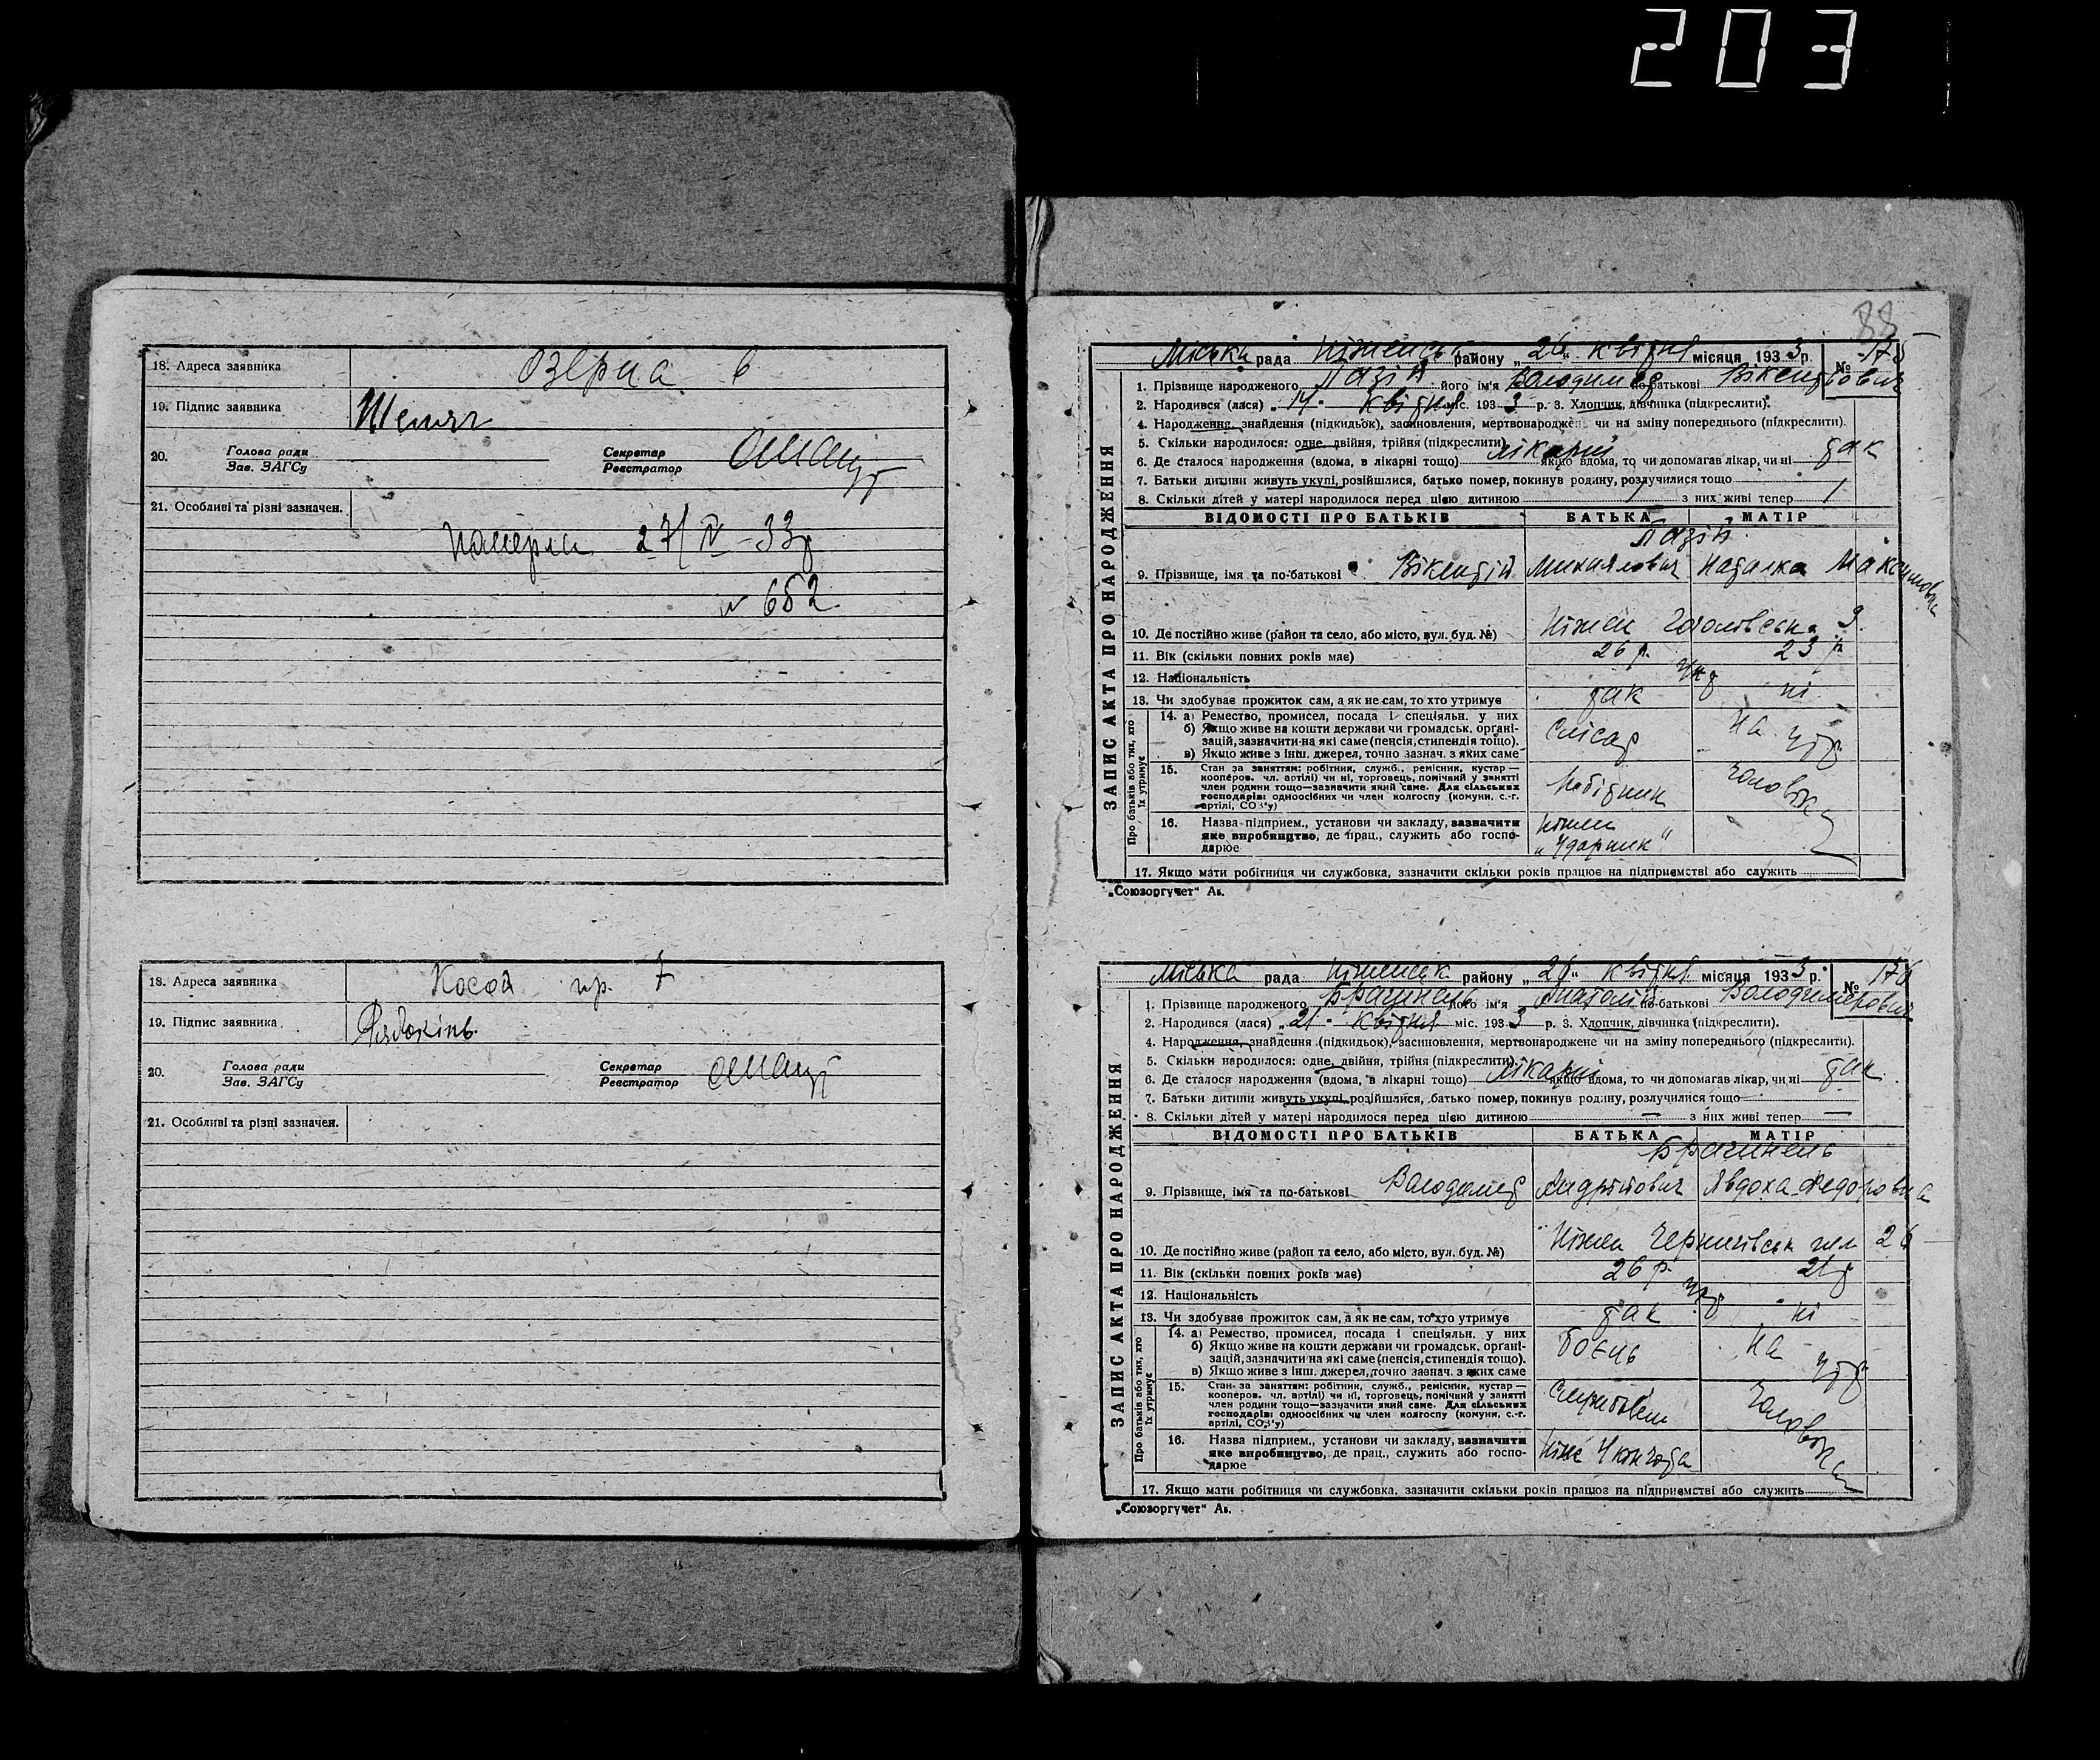 203
18. Адреса заявника Озерна 6
19. Підпис заявника
20. Голова ради
Зав. ЗАГСу
Секретар
Реєстратор
21. Особливі та різні зазначен.
померла 27/IV-33р
№ 652
18. Адреса заявника Косой пр. 7
19. Підпис заявника Рябокінь
20. Голова ради
Зав. ЗАГСу
Секретар
Реєстратор
21. Особливі та різні зазначен.
88
ЗАПИС АКТА ПРО НАРОДЖЕННЯ
Міська рада Ніженськ району „26“ квітня місяця 1933 р. № 175
1. Прізвище народженого Лазій його ім'я Володимер по-батькові Вікентьович
2. Народився (лася) „14“ квітня міс. 1933 р. 3. Хлопчик, дівчинка (підкреслити).
4. Народження, знайдення (підкидьок), засиновлення, мертвонароджене чи на зміну попереднього (підкреслити).
5. Скільки народилося: одне, двійня, трійня (підкреслити)
6. Де сталося народження (вдома, в лікарні тощо) лікарні якщо вдома, то чи допомагав лікар, чи ні так
7. Батьки дитини живуть укупі, розійшлися, батько помер, покинув родину, розлучилися тощо
8. Скільки дітей у матері народилося перед цією дитиною 1 з них живі тепер 1
ВІДОМОСТІ ПРО БАТЬКІВ БАТЬКА МАТІР
Лазій
9. Прізвище, імя та по-батькові Вікентій Михайлович Наталка Максимовна
10. Де постійно живе (район та село, або місто, вул. буд. №) Ніжен Гоголівська 9
11. Вік (скільки повних років має) 26 р. 23 р
12. Національність укр
13. Чи здобуває прожиток сам, а як не сам, то хто утримує так ні
Про батьків або тих, хто їх утримує
14. а) Ремество, промисел, посада і спеціяльн. у них Слісар На утр
б) Якщо живе на кошти держави чи громадськ. органі-
зацій, зазначити на які саме (пенсія, стипендія тощо).
в) Якщо живе з інш. джерел, точно зазнач. з яких саме
15. Стан за заняттям: робітник, служб., ремісник, кустар— Робітник чоловіка
кооперов. чл. артілі) чи ні, торговець, помічний у занятті
член родини тощо—зазначити який саме. Для сільських
господарів: одноосібних чи член колгоспу (комуни, с.-г.
артілі, СОЗ'у)
16. Назва підприєм., установи чи закладу, зазначити Ніжен
яке виробництво, де прац., служить або госпо- „Ударник“
дарює
17. Якщо мати робітниця чи службовка, зазначити скільки років працює на підприємстві або служить
„Союзоргучет“ Ак.
ЗАПИС АКТА ПРО НАРОДЖЕННЯ
Міська рада Ніженськ району „26“ квітня місяця 1933 р. № 176
1. Прізвище народженого Брагинець його ім'я Анатолій по-батькові Володимерович
2. Народився (лася) „21“ квітня міс. 1933 р. 3. Хлопчик, дівчинка (підкреслити).
4. Народження, знайдення (підкидьок), засиновлення, мертвонароджене чи на зміну попереднього (підкреслити).
5. Скільки народилося: одне, двійня, трійня (підкреслити)
6. Де сталося народження (вдома, в лікарні тощо) лікарні якщо вдома, то чи допомагав лікар, чи ні так
7. Батьки дитини живуть укупі, розійшлися, батько помер, покинув родину, розлучилися тощо
8. Скільки дітей у матері народилося перед цією дитиною — з них живі тепер —
ВІДОМОСТІ ПРО БАТЬКІВ БАТЬКА МАТІР
Брагинець
9. Прізвище, імя та по-батькові Володимер Андрійович Явдоха Федоровна
10. Де постійно живе (район та село, або місто, вул. буд. №) Ніжен Чернигівськ 26
11. Вік (скільки повних років має) 26 р. 21 р
12. Національність укр
13. Чи здобуває прожиток сам, а як не сам, то хто утримує так ні
Про батьків або тих, хто їх утримує
14. а) Ремество, промисел, посада і спеціяльн. у них боєць На утр
б) Якщо живе на кошти держави чи громадськ. органі-
зацій, зазначити на які саме (пенсія, стипендія тощо).
в) Якщо живе з інш. джерел, точно зазнач. з яких саме
15. Стан за заняттям: робітник, служб., ремісник, кустар— Службовець чоловіка
кооперов. чл. артілі) чи ні, торговець, помічний у занятті
член родини тощо—зазначити який саме. Для сільських
господарів: одноосібних чи член колгоспу (комуни, с.-г.
артілі, СОЗ'у)
16. Назва підприєм., установи чи закладу, зазначити
яке виробництво, де прац., служить або госпо-
дарює
17. Якщо мати робітниця чи службовка, зазначити скільки років працює на підприємстві або служить
„Союзоргучет“ Ак.